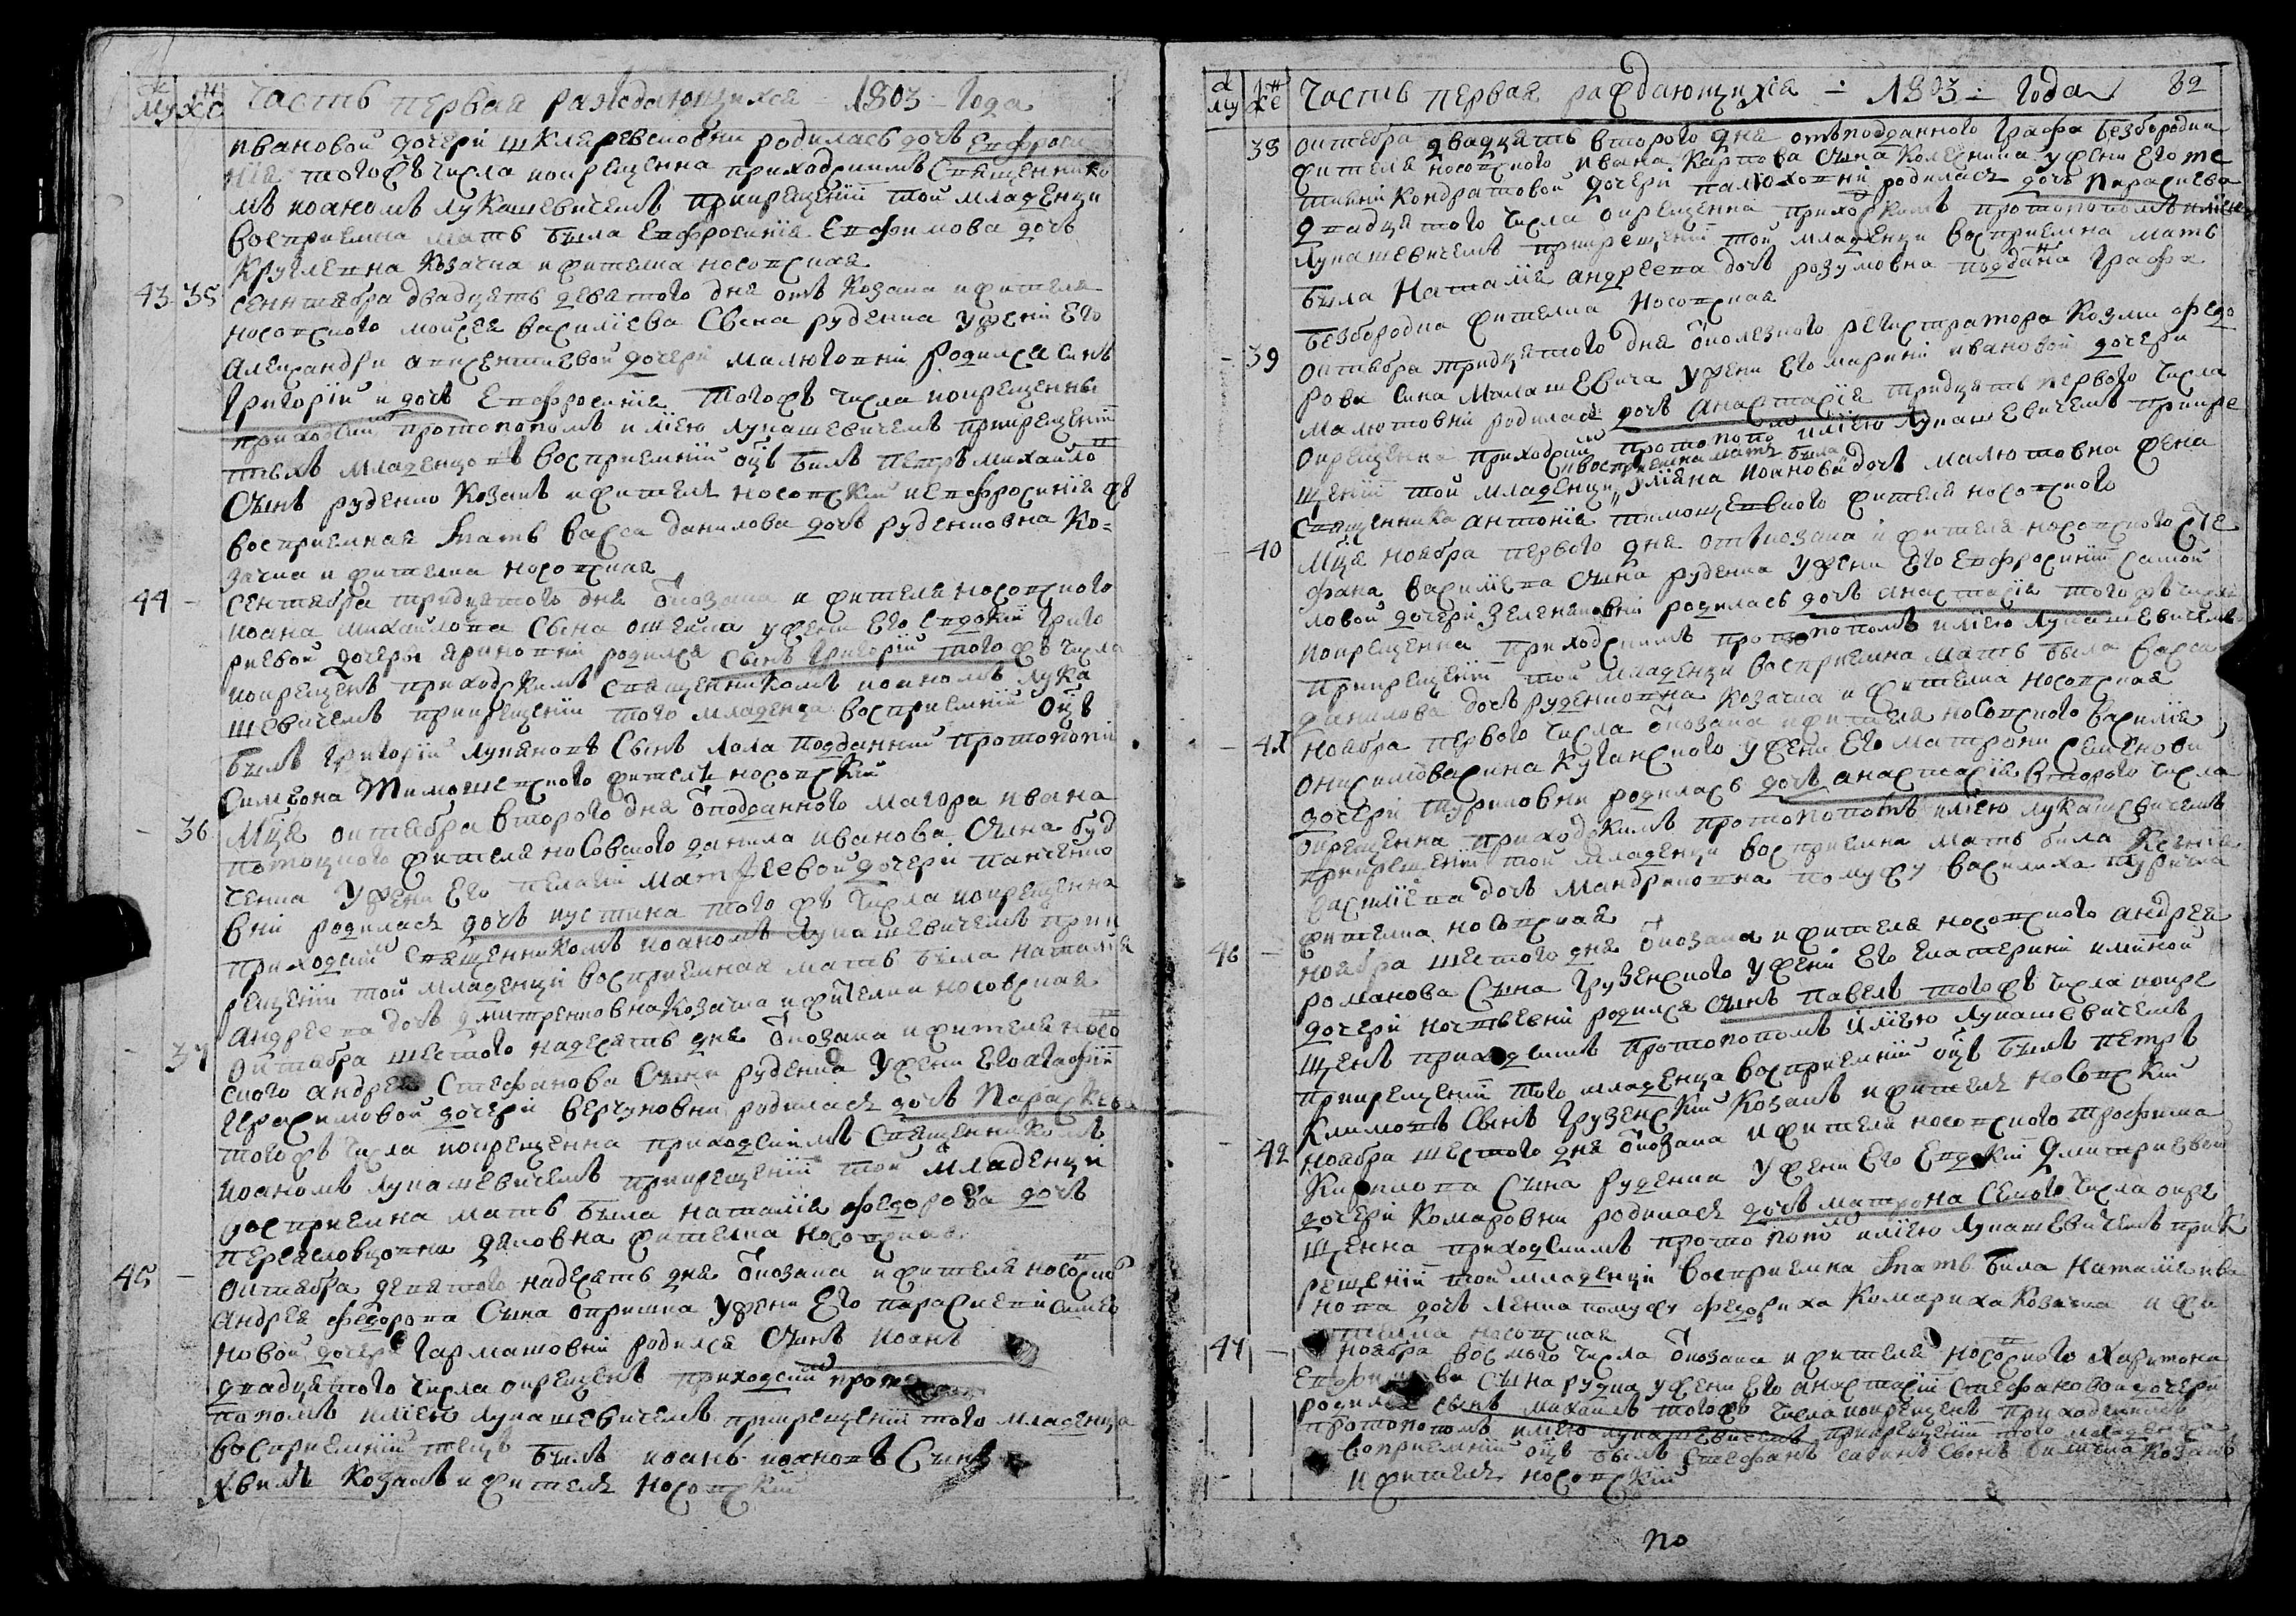 му же Часть первая раждающихся 1803 года
ивановой дочери шкляревсковни родилась дочь Евфроси
нія тогожъ числа и окрещенна приходскимъ священнико
мъ иоаномъ лукашевичемъ прикрещеніи той младенци
восприемна мать была Евфросинія Евфимова дочь
круглевна козачка и жителка носовская
43 35 сентября двадцять девятого дня отъ козака и жителя
носовского мойсея василіева сына руденка у жени его
александри авксентиевой дочери милютовни родился синъ
григорій и дочь Евфросинія тогожъ числа и окрещенны
приходским протопопомъ иліею лукашевичемъ прикрещеніи
техъ младенцовъ восприемній оцъ былъ петръ михайлов
сынъ руденко козакъ и жителъ носовскій и Евфросиніи же
восприемная мать васса данилова дочь руденковна ко=
зачка и жителка носовская
44 сентября тридцятого дня ѿ козака и жителя носовского
иоана михайлова сына у жени его Евдокіи григо
риевой дочеры яриновни родился сынъ григорій тогожъ числа
и окрещенъ приходскимъ священникомъ иоаномъ лука
шевичемъ прикрещеніи того младенца восприемній оцъ
былъ григорій лукяновъ сынъ лола подданный протопопи
симеона тимошевского жителъ носовскій
36 мца октября второго дня ѿ подданного маіора ивана
потоцкого жителя носовского данила иванова сына буд
ченка у жени его пелагіи матфеевой дочери панченко
вни родилась дочь иустина тогожъ числа и окрещенна
приходским священникомъ иоаномъ лукашевичемъ прик
рещеніи той младенци восприемная мать была наталія
андреева дочь дмитренковна козачка и жителка носовская
37 октября шестого надесять дня ѿ козака и жителя носо
ского андрея стефанова сына руденка у жени его агафіи
герасимовой дочери верчуновни родилась дочь параскева
тогожъ числа и окрещенна приходскимъ священникомъ
иоаномъ лукашевичемъ прикрещеніи той младенци
восприемна мать была наталія федорова дочь
переясловцовна дяковна жителка носовская
45 октября девятого надесять дня ѿ козака и жителя носовског
андрея федорова сына опришка у жени его параскеви симео
новой дочери гарматовни родился сынъ иоанъ
двадцятого числа окрещенъ приходским прото
попомъ иліею лукашевичемъ прикрещеніи того младенца
восприемній отецъ былъ иоанъ иоановъ сынъ
хвиль козакъ и жителъ носовскій
му же Часть первая раждающихся 1803 года 82
38 октября двадцять второго дня отъ подданного графа безбородки
жителя носовского ивана карпова сына колесника у жени его те
тяни кондратовой дочери палюховни родилась дочь параскева
двадцятого числа окрещенна приходскимъ протопопомъ иліею
лукашевичемъ прикрещеніи той младенци восприемна мать
была наталія андреева дочь розумовна поддана графа
безбородка жителка носовская
39 октября тридцятого дня ѿ колезкого регистратора козми федо
рова сина малашевича у жени его марини ивановой дочери
малютовни родилась дочь анастасія тридцять первого числа
окрещенна приходским протопопо иліею лукашевичемъ прикре
щеніи той младенци восприемна мать была уліяна иоанова дочь малютовна жена
священника антонія тимошевского жителя носовского
40 мца ноября первого дня отъ козака и жителя носовского сте
фана василіева сына руденка у жени его Евфросиніи самой
ловой дочери зеленяковни родилась дочь анастасія тогожъ числа
и окрещенна приходскимъ протопопомъ иліею лукашевичемъ
прикрещеніи той младенци восприемна мать была васса
данилова дочь руденковна козачка и жителка носовская
41 ноября первого числа ѿ козака и жителя носовского василія
онисимова сина куганского у жени его матрони семенови
дочери туриковни родилась дочь анастасія второго числа
ѿкрещенна приходскимъ протопопомъ иліею лукашевичемъ
прикрещеніи той младенци восприемна мать била ксенія
василіева дочь мандриковна помужу василиха
жителка носовская
46 ноября шестого дня ѿ козака и жителя носовского андрея
романова сына грузенского у жени его екатерини
дочери родился сынъ павелъ тогожъ числа и окре
щенъ приходскимъ протопопомъ иліею лукашевичемъ
прикрещеніи того младенца восприемній оцъ былъ петръ
климовъ сынъ грузенскій козакъ и жителъ носовскій
42 ноября шестого дня ѿ козака и жителя носовского трофима
кирилова сына руденка у жени его Евдокіи дмитриевой
дочери комаровни родилась дочь матрона семого числа окре
щенна приходскимъ протопопо иліею лукашевичемъ прик
рещеніи той младенци восприемна мать била наталія ива
нова дочь помужу федориха комариха козачка и жи
телка носовская
47 ноября восмого числа ѿ козака и жителя носовского харитона
Евфимова сына рудка у жени его анастасіи стефановой дочери
родился сынъ михаилъ тогожъ числа и окрещенъ приходскимъ
протопопомъ иліею лукашевичемъ прикрещеніи того младенца
восприемній оцъ былъ стефанъ савинъ сынъ козакъ
и жителъ носовскій
по